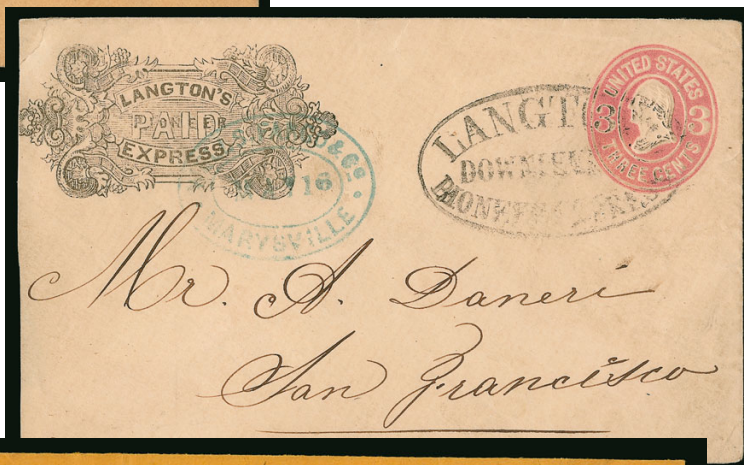 LANGTON'S
PAID
EXPRESS
& Co.
16
MARYSVILLE
LANGTO
DOWNIEVI
PIONEER EXPRESS
UNITED STATES
3 3
THREE CENTS
Mr. A. Daneri
San Francisco